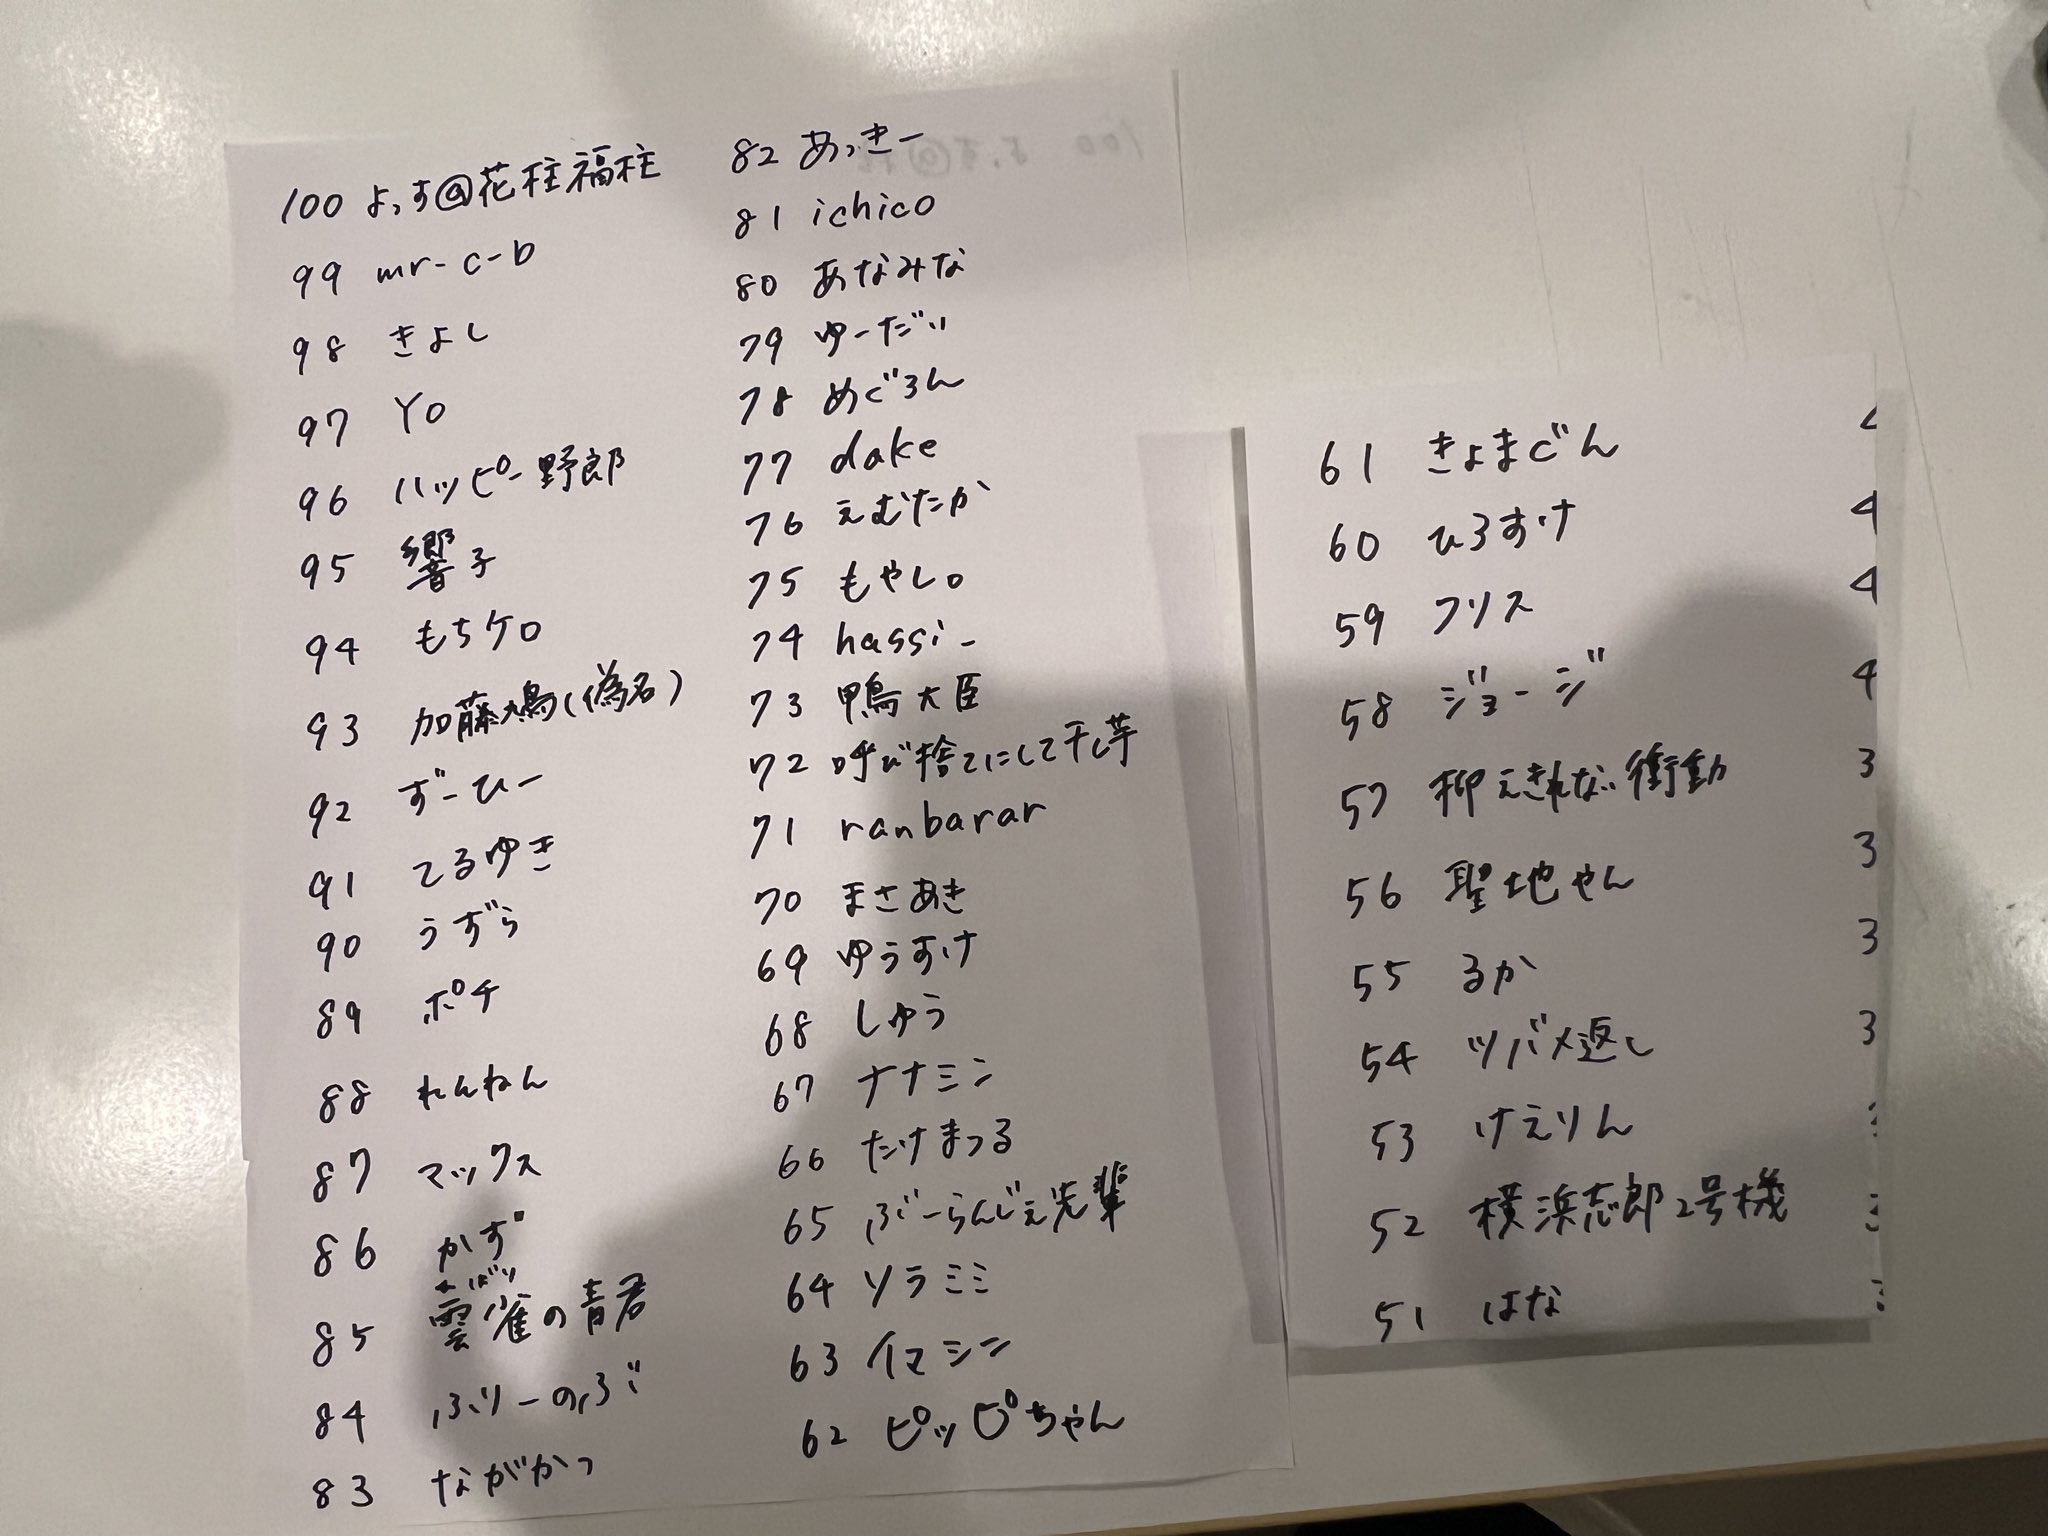 100 よっす@花柱福柱
99 mr-c-b
98 きよし
97 Yo
96 ハッピー野郎
95 響子
94 もちケロ
93 加藤鳰(偽名)
92 ずーひー
91 てるゆき
90 うずら
89 ポチ
88 れんねん
87 マックス
86 かす゜
ひばり
85 雲雀の青君
84 ふりーのぶ
83 ながかつ
82 あっきー
81 ichico
80 あなみな
79 ゆーだい
78 めぐろん
77 dake
76 えむたか
75 もやし。
74 hassi-
73 鴨大臣
72 呼び捨てにして干し芋
71 ranbarar
70 まさあき
69 ゆうすけ
68 しゅう
67 ナナミン
66 たけまつる
65 ぶーらんじぇ先輩
64 ソラミミ
63 イマシン
62 ピッピちゃん
61 きよまどん
60 ひろすけ
59 フリス
58 ジョージ
57 抑えきれない衝動
56 聖地やん
55 るか
54 ツバメ返し
53 けえりん
52 横浜志郎2号機
51 はな